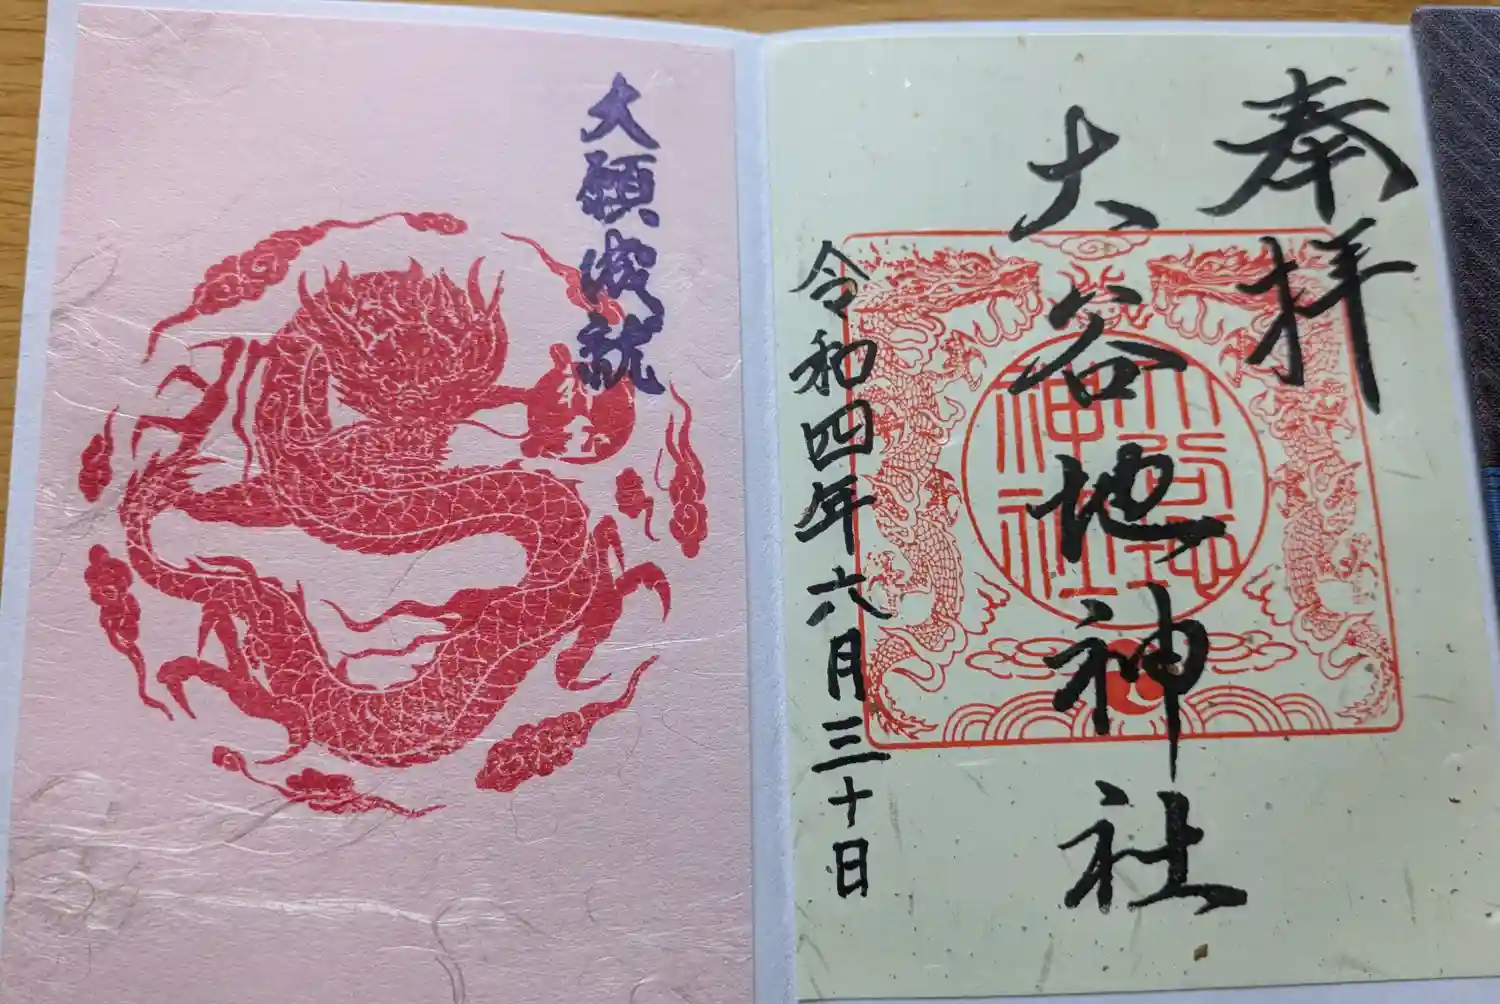 奉拝
大谷地神社
大谷地
神社
令和四年六月三十日
大願成就
神玉